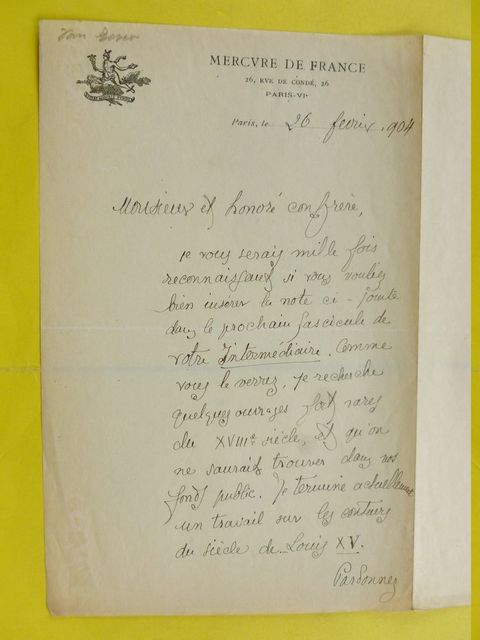 Van Bever
MERCVRE DE FRANCE
26, RVE DE CONDÉ, 26
PARIS-VIe
Paris, le 26 fevrier 1904
Monsieur et honoré confrère,
je vous serais mille fois
reconnaissant si vous vouliez
bien insérer la note ci-jointe
dans le prochain fascicule de
votre Intermédiaire. Comme
vous le verrez, je recherche
quelques ouvrages fort rares
du XVIIIe siècle, et qu'on
ne saurait trouver dans nos
fonds public. Je termine actuellement
un travail sur les conteurs
du siècle de Louis XV.
Pardonnez